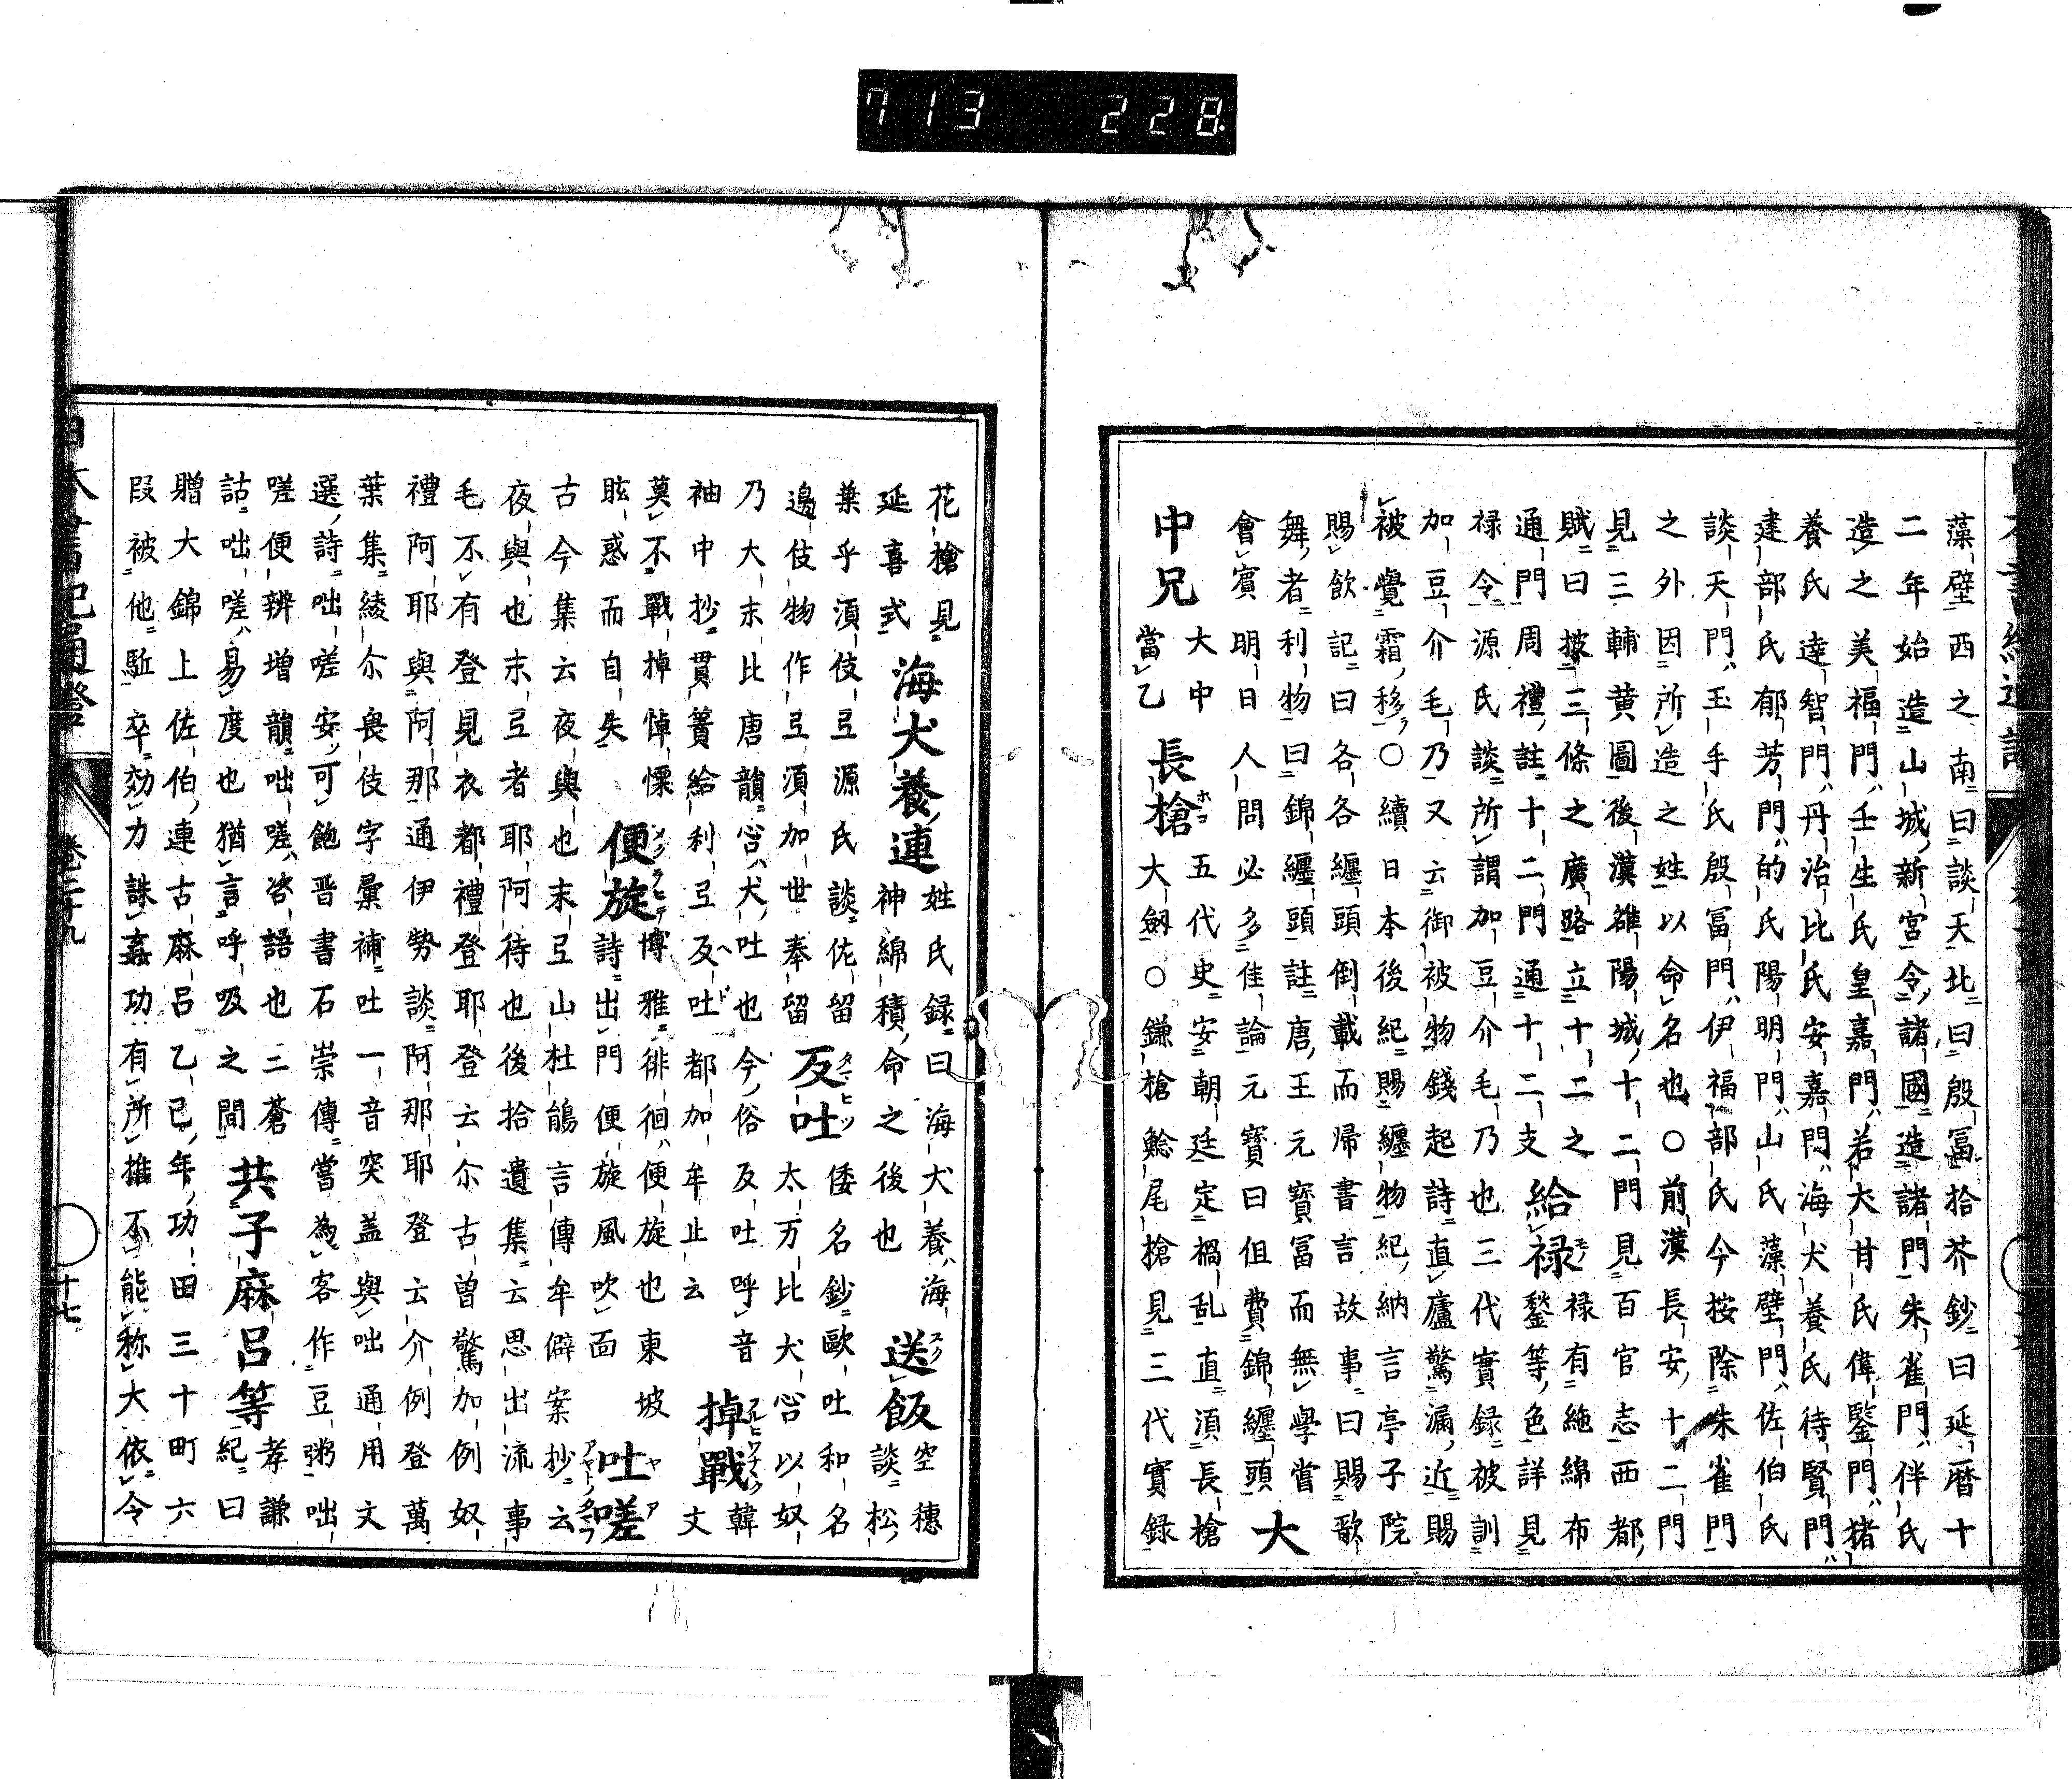 713 228
藻壁西之南曰談天北曰殷冨拾芥鈔曰延暦十
二年始造山城新宮令諸國造諸門朱雀門伴氏
造之美福門壬生氏皇嘉門若犬甘氏偉鑒門猪
養氏達智門丹治比氏安嘉門海犬養氏待賢門
建部氏郁芳門的氏陽明門山氏藻壁門佐伯氏
談天門玉手氏殷冨門伊福部氏今按除朱雀門
之外因所造之姓以命名也〇前漢長安十二門
見三輔黄圖後漢雒陽城十二門見百官志西都
賦曰披三條之廣路立十二之
通門周禮註十二門通十二支
給禄
禄有絁綿布
鍫等色詳見
禄令源氏談所謂加豆介毛乃也三代實録被訓
加豆介毛乃又云御被物錢起詩直廬驚漏近賜
被覺霜移〇續日本後紀賜纏物紀納言亭子院
賜飲記曰各各纏頭倒載而歸書言故事曰賜歌
舞者利物曰錦纏頭註唐王元寳冨而無學嘗
會賓明日人問必多佳論元寳曰但費錦纏頭
大
中兄
大中五代史安朝廷定禍乱直須長槍
當乙
長槍
大劔〇鎌槍鯰尾槍見三代實録
花槍見
延喜式
海犬養連
姓氏録曰海犬養海
神綿積命之後也
送飯
空穗
談松
葉乎湏伎弖源氏談佐留
邊伎物作弖湏加世奉留
反吐
倭名鈔歐吐和名
太万比犬㤐以奴
乃大末比唐韻㤐犬吐也今俗反吐呼音
袖中抄貫簀給利弖反吐都加牟止云
掉戰
韓
文
莫不戰掉悼慄
眩惑而自失
便旋
博雅徘徊便旋也東坡
詩出門便旋風吹面
吐嗟
古今集云夜與也末弖山杜鵑言傳牟僻案抄云
夜與也末弖者耶阿待也後拾遺集云思出流事
毛不有登見衣都禮登耶登云尒古曽驚加例奴
禮阿耶與阿那通伊勢談阿那耶登云介例登萬
葉集綾尒畏伎字彙補吐一音突盖與咄通用文
選詩咄嗟安可飽晋書石崇傳嘗為客作豆粥咄
嗟便辨増韻咄嗟咨語也二蒼
詁咄嗟易度也猶言呼吸之間
共子麻呂等
孝謙
紀曰
贈大錦上佐伯連古麻呂乙巳年功田三十町六
叚被他駈卒効力誅姦功有所推不能称大依令
日本書紀通證
卷二十九
十七